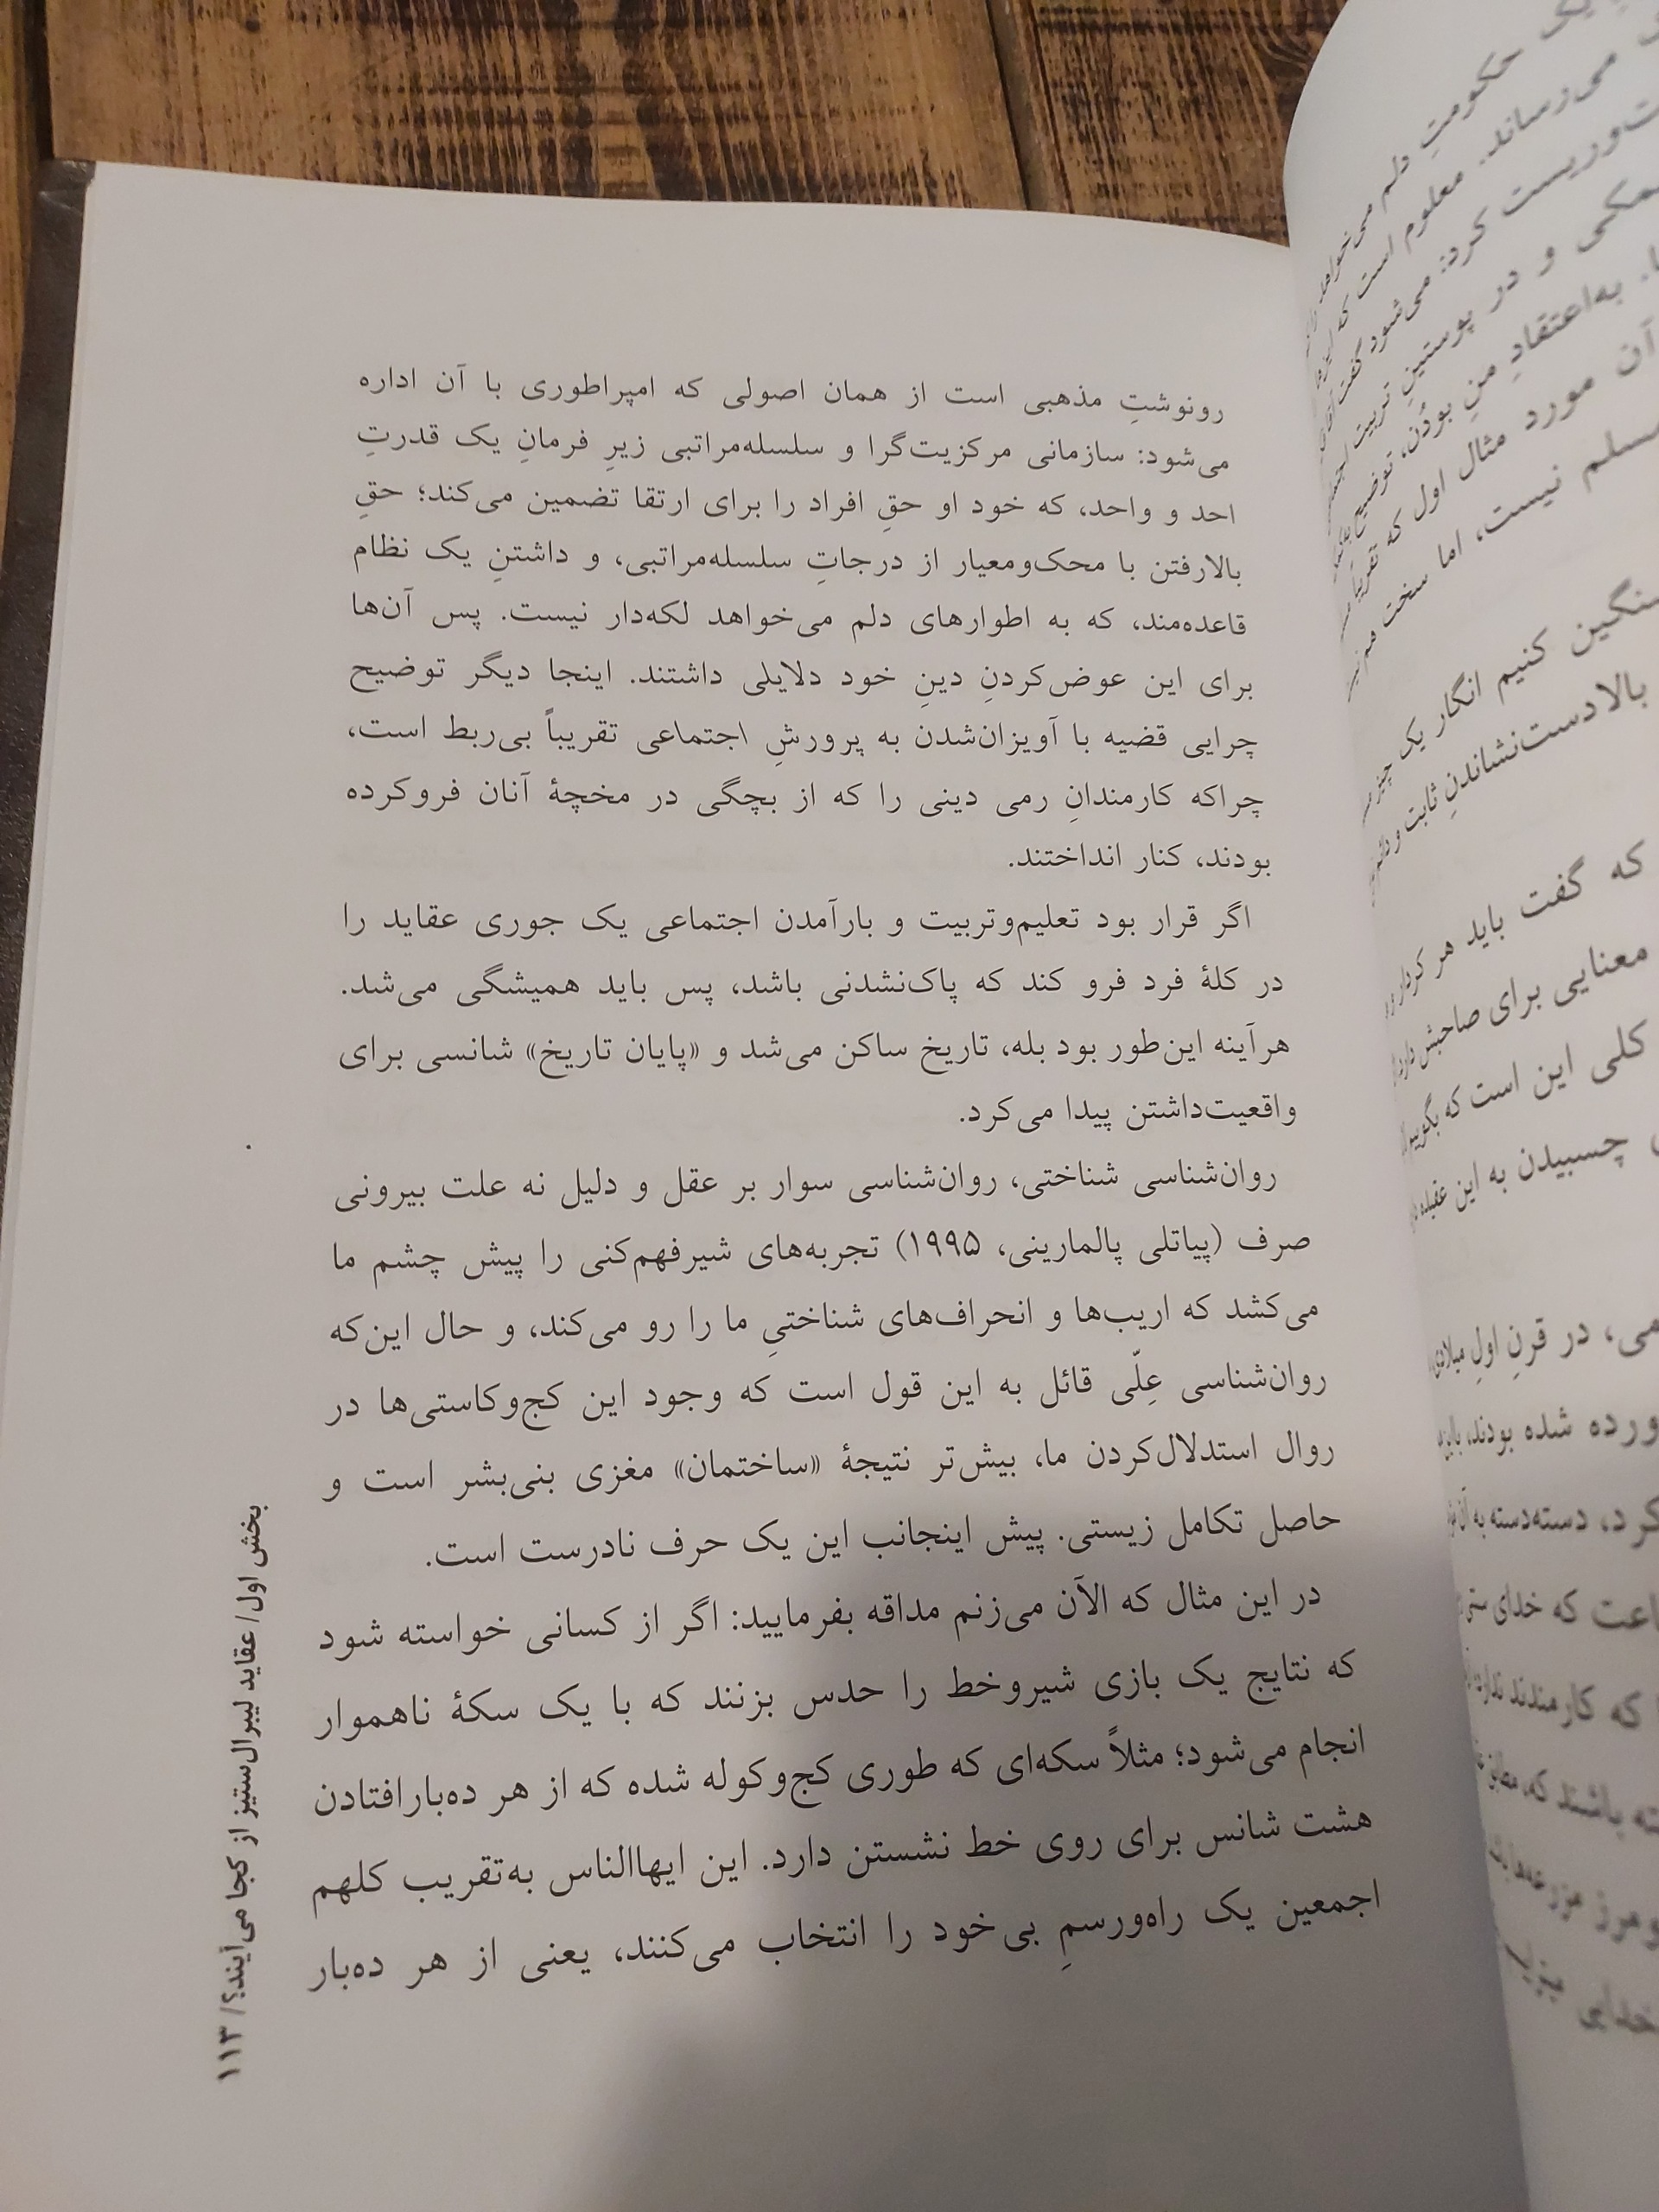 رونوشتِ مذهبی است از همان اصولی که امپراطوری با آن اداره
می‌شود: سازمانی مرکزیت‌گرا و سلسله‌مراتبی زیرِ فرمانِ یک قدرتِ
احد و واحد، که خود او حقِ افراد را برای ارتقا تضمین می‌کند؛ حقِ
بالارفتن با محک‌ومعیار از درجاتِ سلسله‌مراتبی، و داشتنِ یک نظام
قاعده‌مند، که به اطوارهای دلم می‌خواهد لکه‌دار نیست. پس آن‌ها
برای این عوض‌کردنِ دینِ خود دلایلی داشتند. اینجا دیگر توضیح
چرایی قضیه با آویزان‌شدن به پرورشِ اجتماعی تقریباً بی‌ربط است،
چراکه کارمندانِ رمی دینی را که از بچگی در مخچهٔ آنان فروکرده
بودند، کنار انداختند.
اگر قرار بود تعلیم‌وتربیت و بارآمدن اجتماعی یک جوری عقاید را
در کلهٔ فرد فرو کند که پاک‌نشدنی باشد، پس باید همیشگی می‌شد.
هرآینه این‌طور بود بله، تاریخ ساکن می‌شد و «پایان تاریخ» شانسی برای
واقعیت‌داشتن پیدا می‌کرد.
روان‌شناسی شناختی، روان‌شناسی سوار بر عقل و دلیل نه علت بیرونی
صرف (پیاتلی پالمارینی، ۱۹۹۵) تجربه‌های شیرفهم‌کنی را پیش چشم ما
می‌کشد که اریب‌ها و انحراف‌های شناختیِ ما را رو می‌کند، و حال این‌که
روان‌شناسی عِلّی قائل به این قول است که وجود این کج‌وکاستی‌ها در
روال استدلال‌کردن ما، بیش‌تر نتیجهٔ «ساختمان» مغزی بنی‌بشر است و
حاصل تکامل زیستی. پیش اینجانب این یک حرف نادرست است.
در این مثال که الآن می‌زنم مداقه بفرمایید: اگر از کسانی خواسته شود
که نتایج یک بازی شیروخط را حدس بزنند که با یک سکهٔ ناهموار
انجام می‌شود؛ مثلاً سکه‌ای که طوری کج‌وکوله شده که از هر ده‌بارافتادن
هشت شانس برای روی خط نشستن دارد. این ایهاالناس به‌تقریب کلهم
اجمعین یک راه‌ورسمِ بی‌خود را انتخاب می‌کنند، یعنی از هر ده‌بار
بخش اول/عقاید لیبرال‌ستیز از کجا می‌آیند؟/ ۱۱۳
حکومتِ دلم می‌خواهد
می‌رساند. معلوم است که
کرد: می‌شود گفت
و در پوستینِ تربیت
به‌اعتقادِ منِ بودُن، توضیح
آن مورد مثال اول که تقریباً
نیست، اما سخت هم
کنیم انگار یک چیز
بالادست‌نشاندنِ ثابت و
که گفت باید هر کردار
معنایی برای صاحبش دارد
کلی این است که بگوییم
چسبیدن به این عقیده
در قرنِ اولِ میلادی
شده بودند،
دسته‌دسته به آن
که خدای
که کارمندند
باشند که، مطابق
خدایی